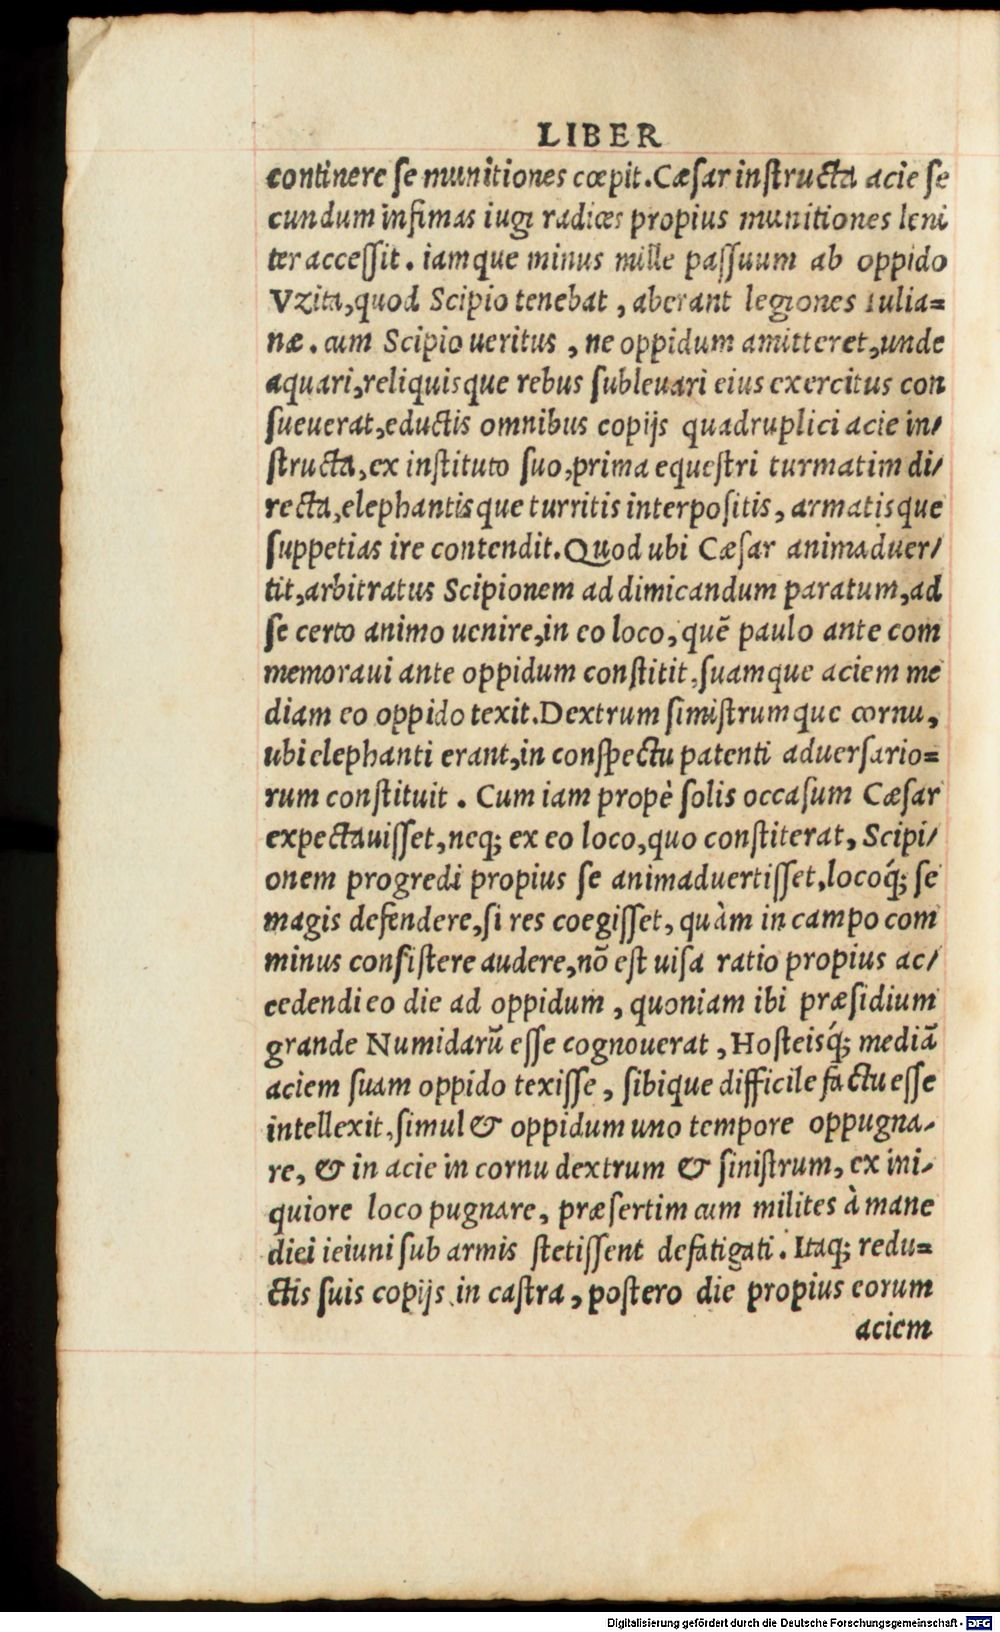 LIBER
continere se munitiones cœpit. Cæsar instructa acie se
cundum infimas iugi radices propius munitiones leni
ter accessit. iamque minus mille passuum ab oppido
Vzita, quod Scipio tenebat, aberant legiones Iulia=
næ. cum Scipio ueritus, ne oppidum amitteret, unde
aquari, reliquisque rebus subleuari eius exercitus con
sueuerat, eductis omnibus copijs quadruplici acie in/
structa, ex instituto suo, prima equestri turmatim di/
recta, elephantisque turritis interpositis, armatisque
suppetias ire contendit. Quod ubi Cæsar animaduer/
tit, arbitratus Scipionem ad dimicandum paratum, ad
se certo animo uenire, in eo loco, quē paulo ante com
memoraui ante oppidum constitit, suamque aciem me
diam eo oppido texit. Dextrum simistrumque cornu,
ubi elephanti erant, in conspectu patenti aduersario=
rum constituit. Cum iam propè solis occasum Cæsar
expectauisset, neq; ex eo loco, quo constiterat, Scipi/
onem progredi propius se animaduertisset, locoq́; se
magis defendere, si res coegisset, quàm in campo com
minus consistere audere, nō est uisa ratio propius ac/
cedendi eo die ad oppidum, quoniam ibi præsidium
grande Numidarū esse cognouerat, Hosteisq́; mediā
aciem suam oppido texisse, sibique difficile factu esse
intellexit, simul & oppidum uno tempore oppugna-
re, & in acie in cornu dextrum & sinistrum, ex ini-
quiore loco pugnare, præsertim cum milites à mane
diei ieiuni sub armis stetissent defatigati. Itaq; redu=
ctis suis copijs in castra, postero die propius eorum
aciem
Digitalisierung gefördert durch die Deutsche Forschungsgemeinschaft - DFG